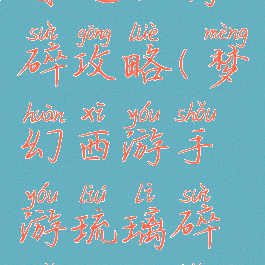 suì gōng lüè mèng
碎攻略(梦
huàn xī yóu shǒu
幻西游手
yóu liú li suì
游琉璃碎